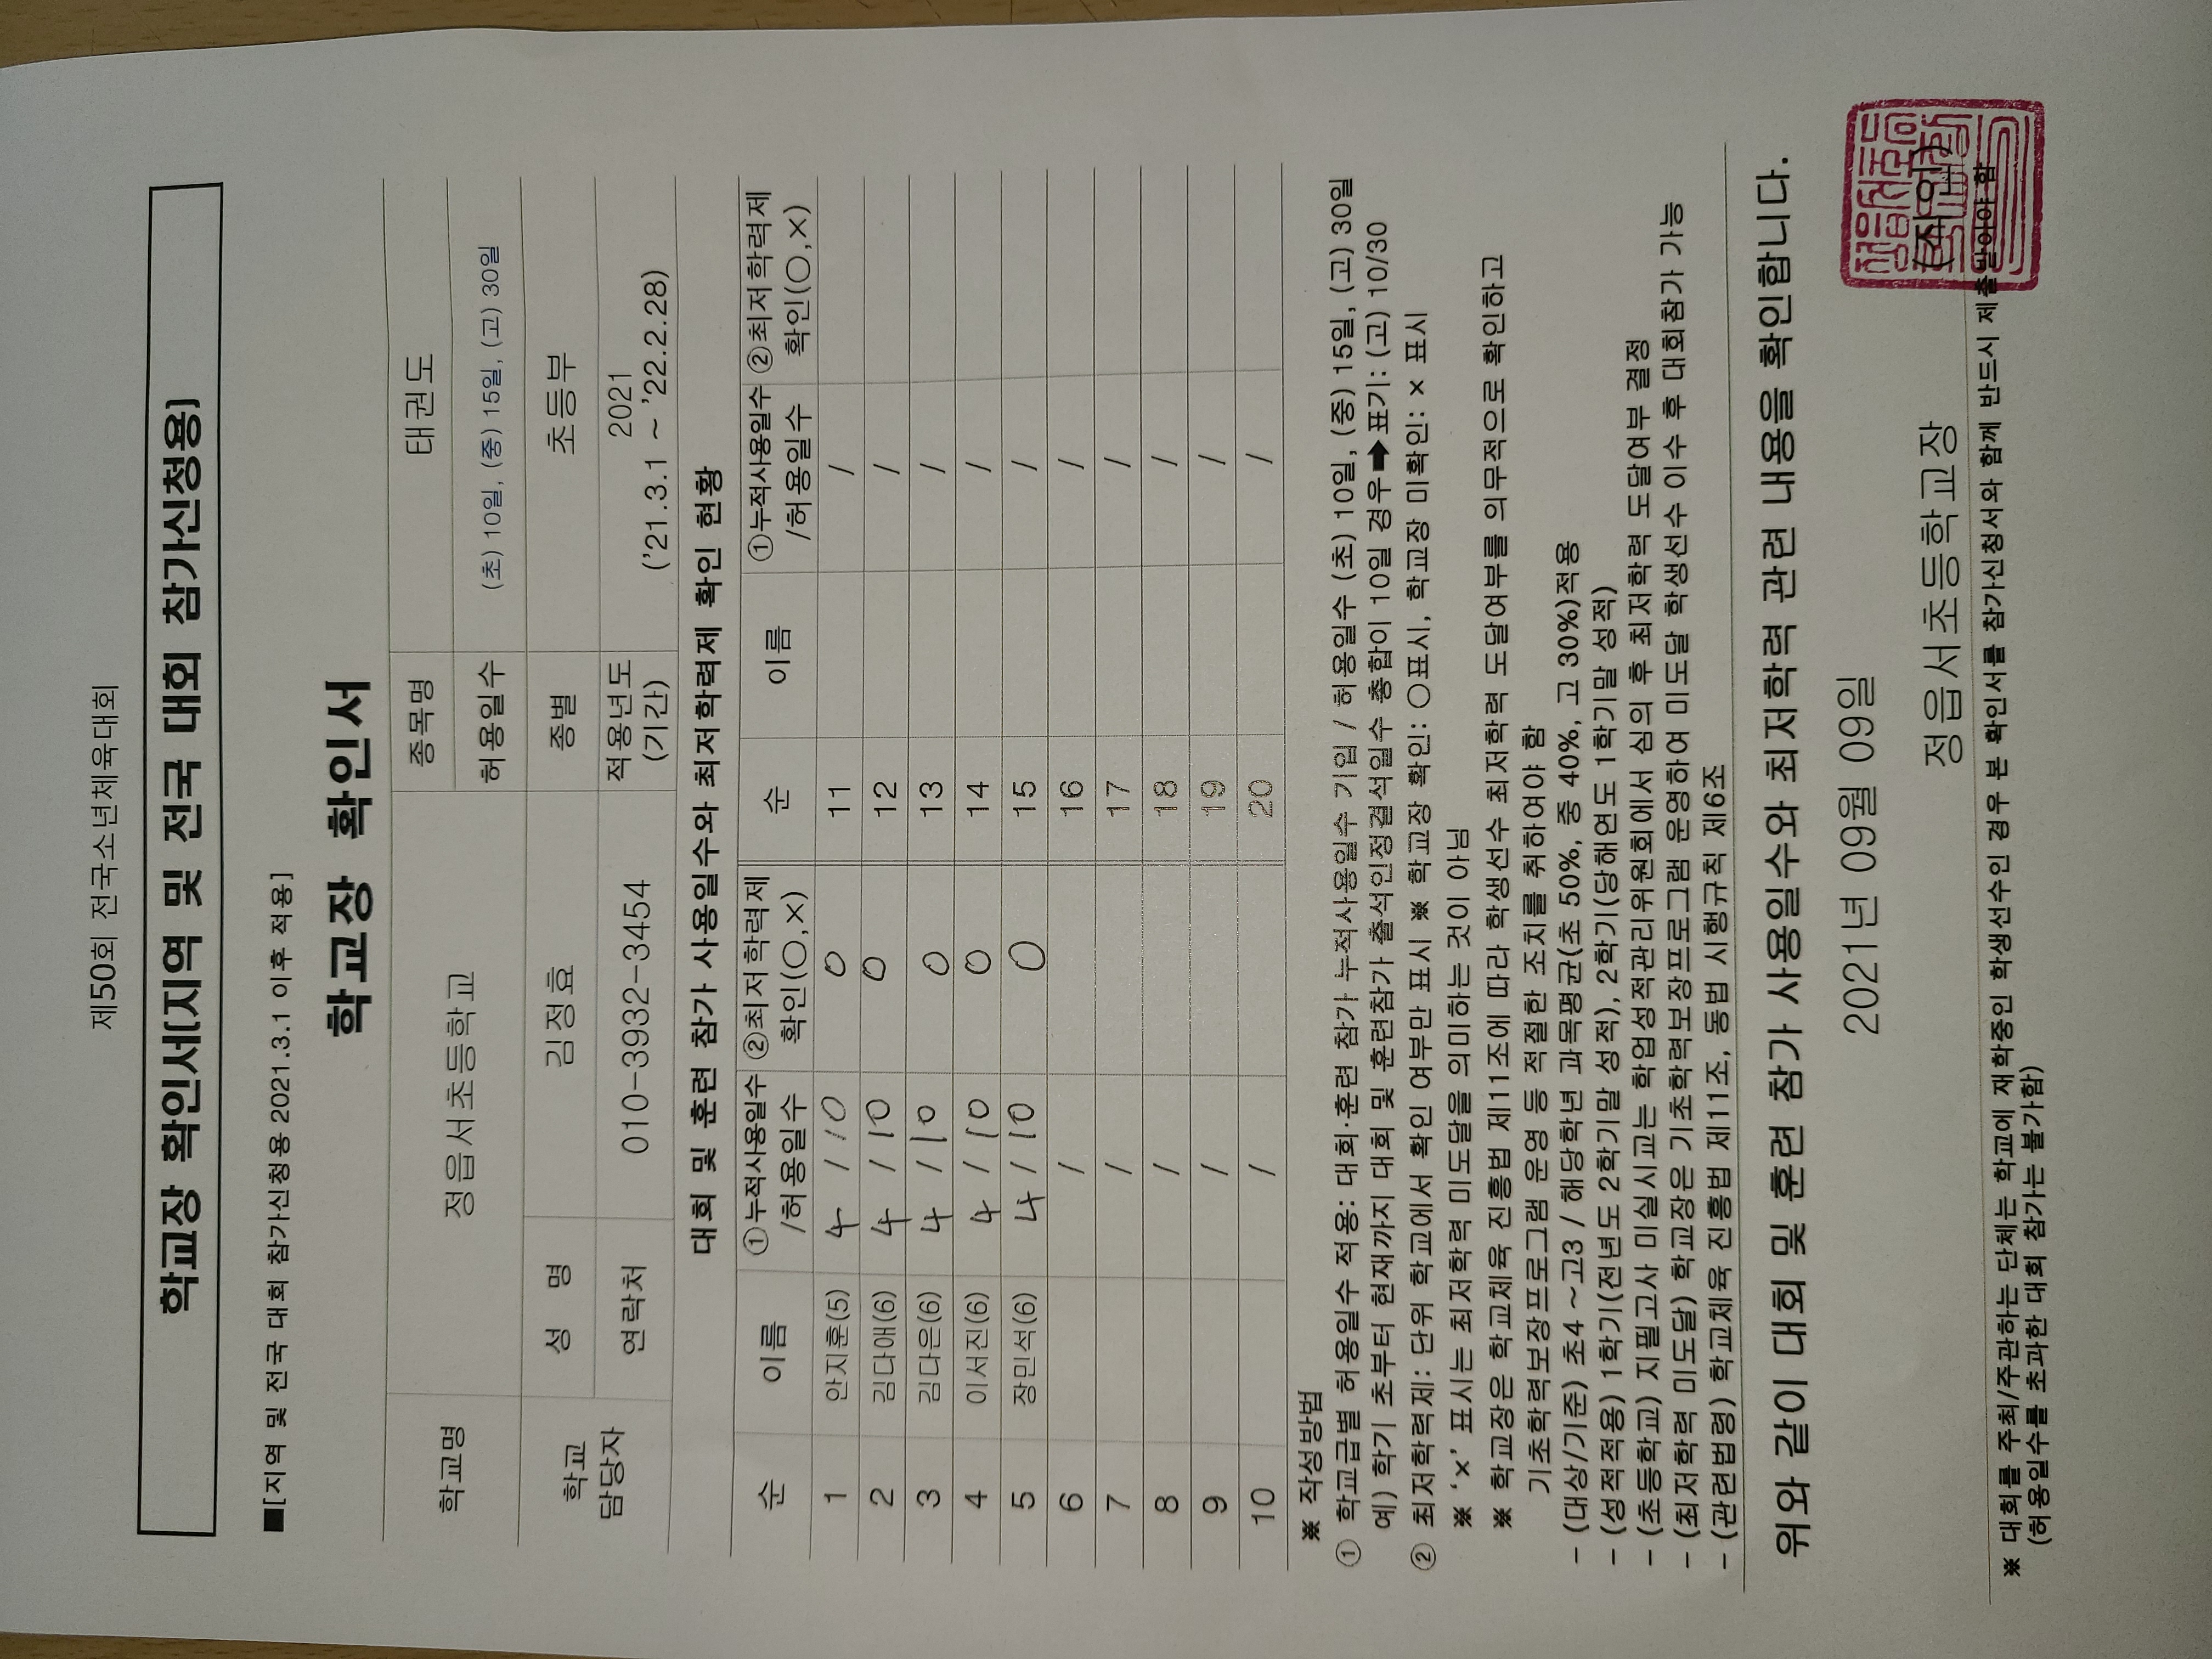 제50회 전국소년체육대회
학교장 확인서(지역 및 전국 대회 참가신청용)
■[지역 및 전국 대회 참가신청용 2021.3.1 이후 적용]
학교장 확인서
학교명 정읍서초등학교 종목명 태권도
허용일수 (초) 10일, (중) 15일, (고) 30일
학교 담당자 성 명 김정효 종별 초등부
연락처 010-3932-3454 적용년도 (기간) 2021 ('21.3.1 ~ '22.2.28)
대회 및 훈련 참가 사용일수와 최저학력제 확인 현황
순 이름 ①누적사용일수 /허용일수 ②최저학력제 확인(○,×) 순 이름 ①누적사용일수 /허용일수 ②최저학력제 확인(○,×)
1 안지훈(5) 4 / 10 O 11 /
2 김다애(6) 4 / 10 O 12 /
3 김다은(6) 4 / 10 O 13 /
4 이서진(6) 4 / 10 O 14 /
5 장민석(6) 4 / 10 O 15 /
6 / 16 /
7 / 17 /
8 / 18 /
9 / 19 /
10 / 20 /
※ 작성방법
① 학교급별 허용일수 적용: 대회·훈련 참가 누적사용일수 기입 / 허용일수 (초) 10일, (중) 15일, (고) 30일
예) 학기 초부터 현재까지 대회 및 훈련참가 출석인정결석일수 총합이 10일 경우➡표기: (고) 10/30
② 최저학력제: 단위 학교에서 확인 여부만 표시 ※ 학교장 확인: ○표시, 학교장 미확인: × 표시
※ '×' 표시는 최저학력 미도달을 의미하는 것이 아님
※ 학교장은 학교체육 진흥법 제11조에 따라 학생선수 최저학력 도달여부를 의무적으로 확인하고
기초학력보장프로그램 운영 등 적절한 조치를 취하여야 함
- (대상/기준) 초4 ~고3 / 해당학년 과목평균(초 50%, 중 40%, 고 30%)적용
- (성적적용) 1학기(전년도 2학기말 성적), 2학기(당해연도 1학기말 성적)
- (초등학교) 지필고사 미실시교는 학업성적관리위원회에서 심의 후 최저학력 도달여부 결정
- (최저학력 미도달) 학교장은 기초학력보장프로그램 운영하여 미도달 학생선수 이수 후 대회참가 가능
- (관련법령) 학교체육 진흥법 제11조, 동법 시행규칙 제6조
위와 같이 대회 및 훈련 참가 사용일수와 최저학력 관련 내용을 확인합니다.
2021년 09월 09일
정읍서초등학교장 (직인)
※ 대회를 주최/주관하는 단체는 학교에 재학중인 학생선수인 경우 본 확인서를 참가신청서와 함께 반드시 제출받아야 함
(허용일수를 초과한 대회 참가는 불가함)